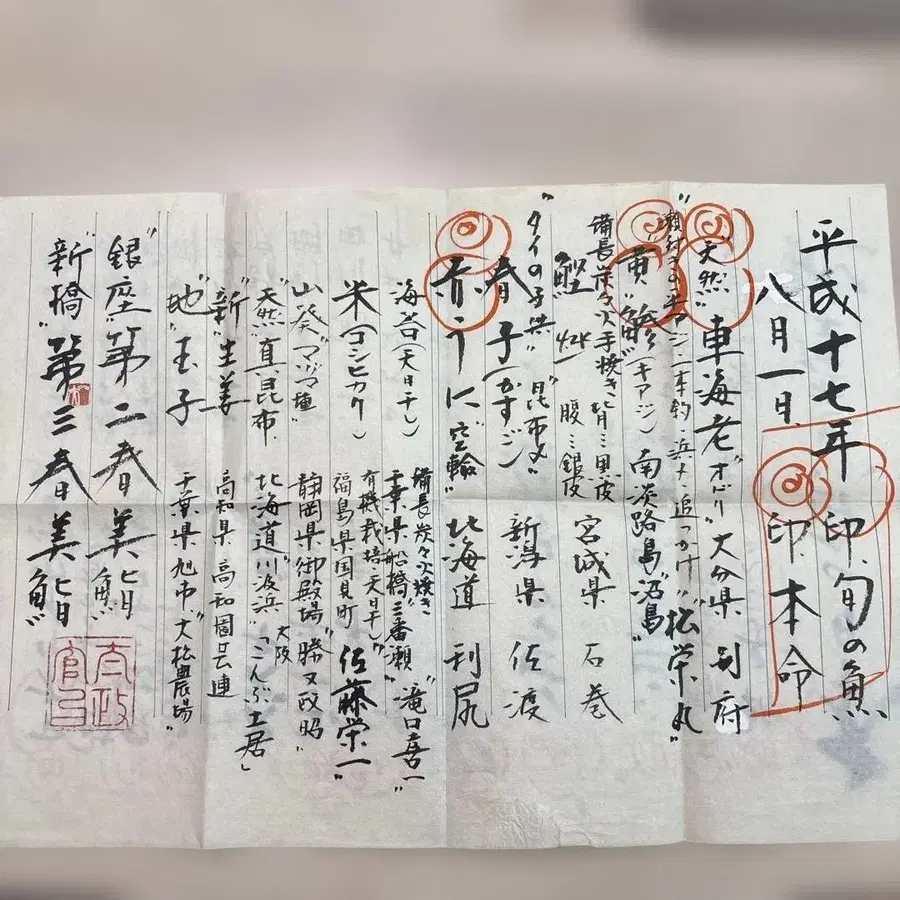 平成十七年 印.旬の魚
八月一日. 印.本命
"天然" 車海老"オドリ" 大分県 別府
"瀬付きの平アジ・一本釣・浜〆・追っかけ" "松栄丸"
"黄"鯵(キアジ) 南淡路島"沼島"
備長炭々火手焼き 背ミ黒皮 腹ミ銀皮
鰹 宮城県 石巻
春子(かすご) 新潟県 佐渡
"タイの子供" "昆布〆"
赤うに"宝輪" 北海道 利尻
海苔(天日干し) 千葉県船橋"三番瀬" "滝口喜一"
備長炭々火焼き
米(コシヒカリ) 福島県国見町 佐藤栄一"
有機栽培・天日干し
山葵"マヅマ種" 静岡県御殿場"勝又政昭"
"天然"真.昆布. 北海道"川汲浜" 大阪「こんぶ土居」
"新"生姜 高知県 高知園芸連
"地"玉子 千葉県旭市."大松農場"
"銀座"第二春美鮨
"新橋"第三春美鮨